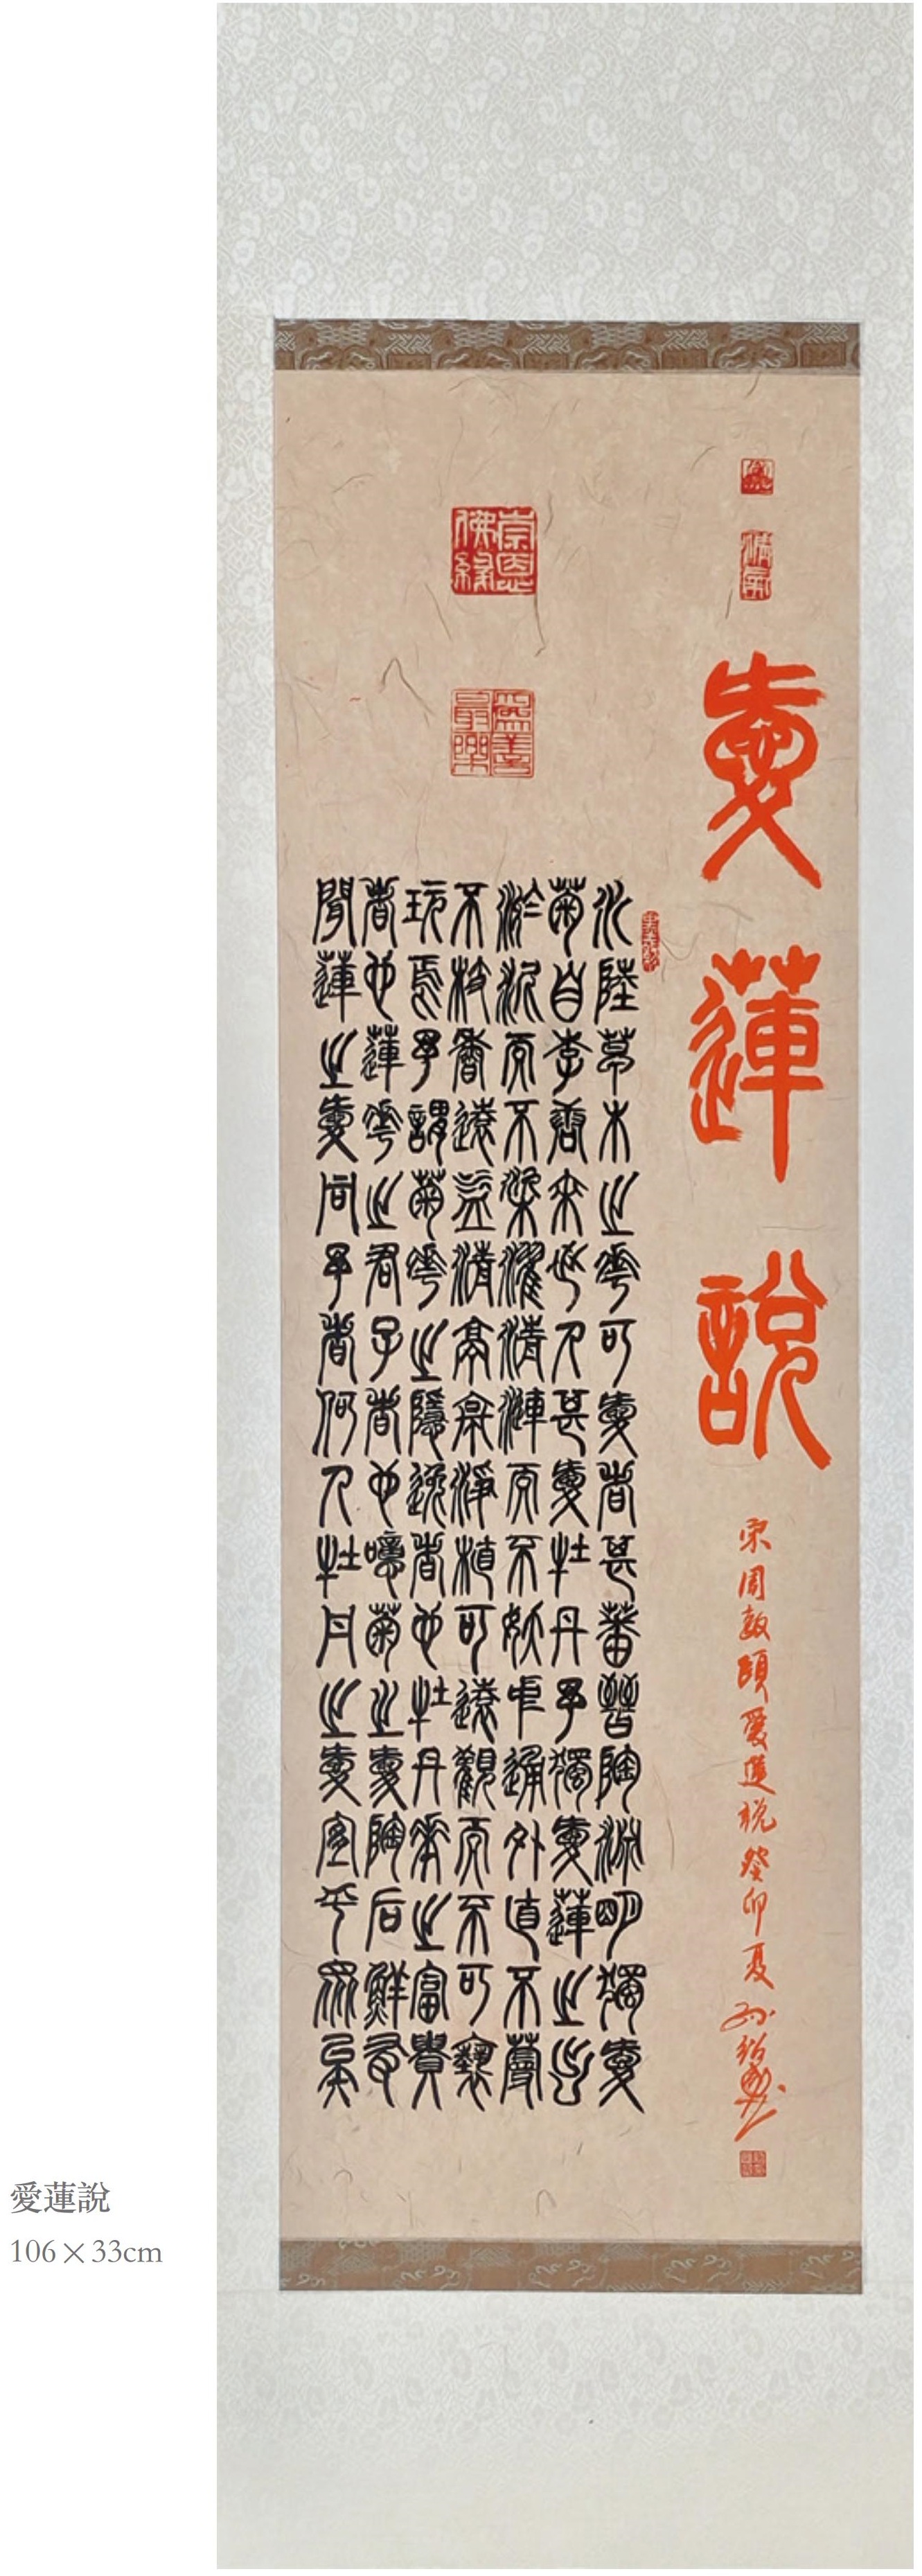 愛蓮說
宋周敦頤愛蓮說癸卯夏
水陸草木之花可愛者甚蕃晉陶淵明獨愛
菊自李唐來世人甚愛牡丹予獨愛蓮之出
淤泥而不染濯清漣而不妖中通外直不蔓
不枝香遠益清亭亭淨植可遠觀而不可褻
玩焉予謂菊花之隱逸者也牡丹花之富貴
者也蓮花之君子者也噫菊之愛陶后鮮有
聞蓮之愛同予者何人牡丹之愛宜乎眾矣
崇恩
佛緣
為善
最樂
清氣
愛蓮說
106×33cm